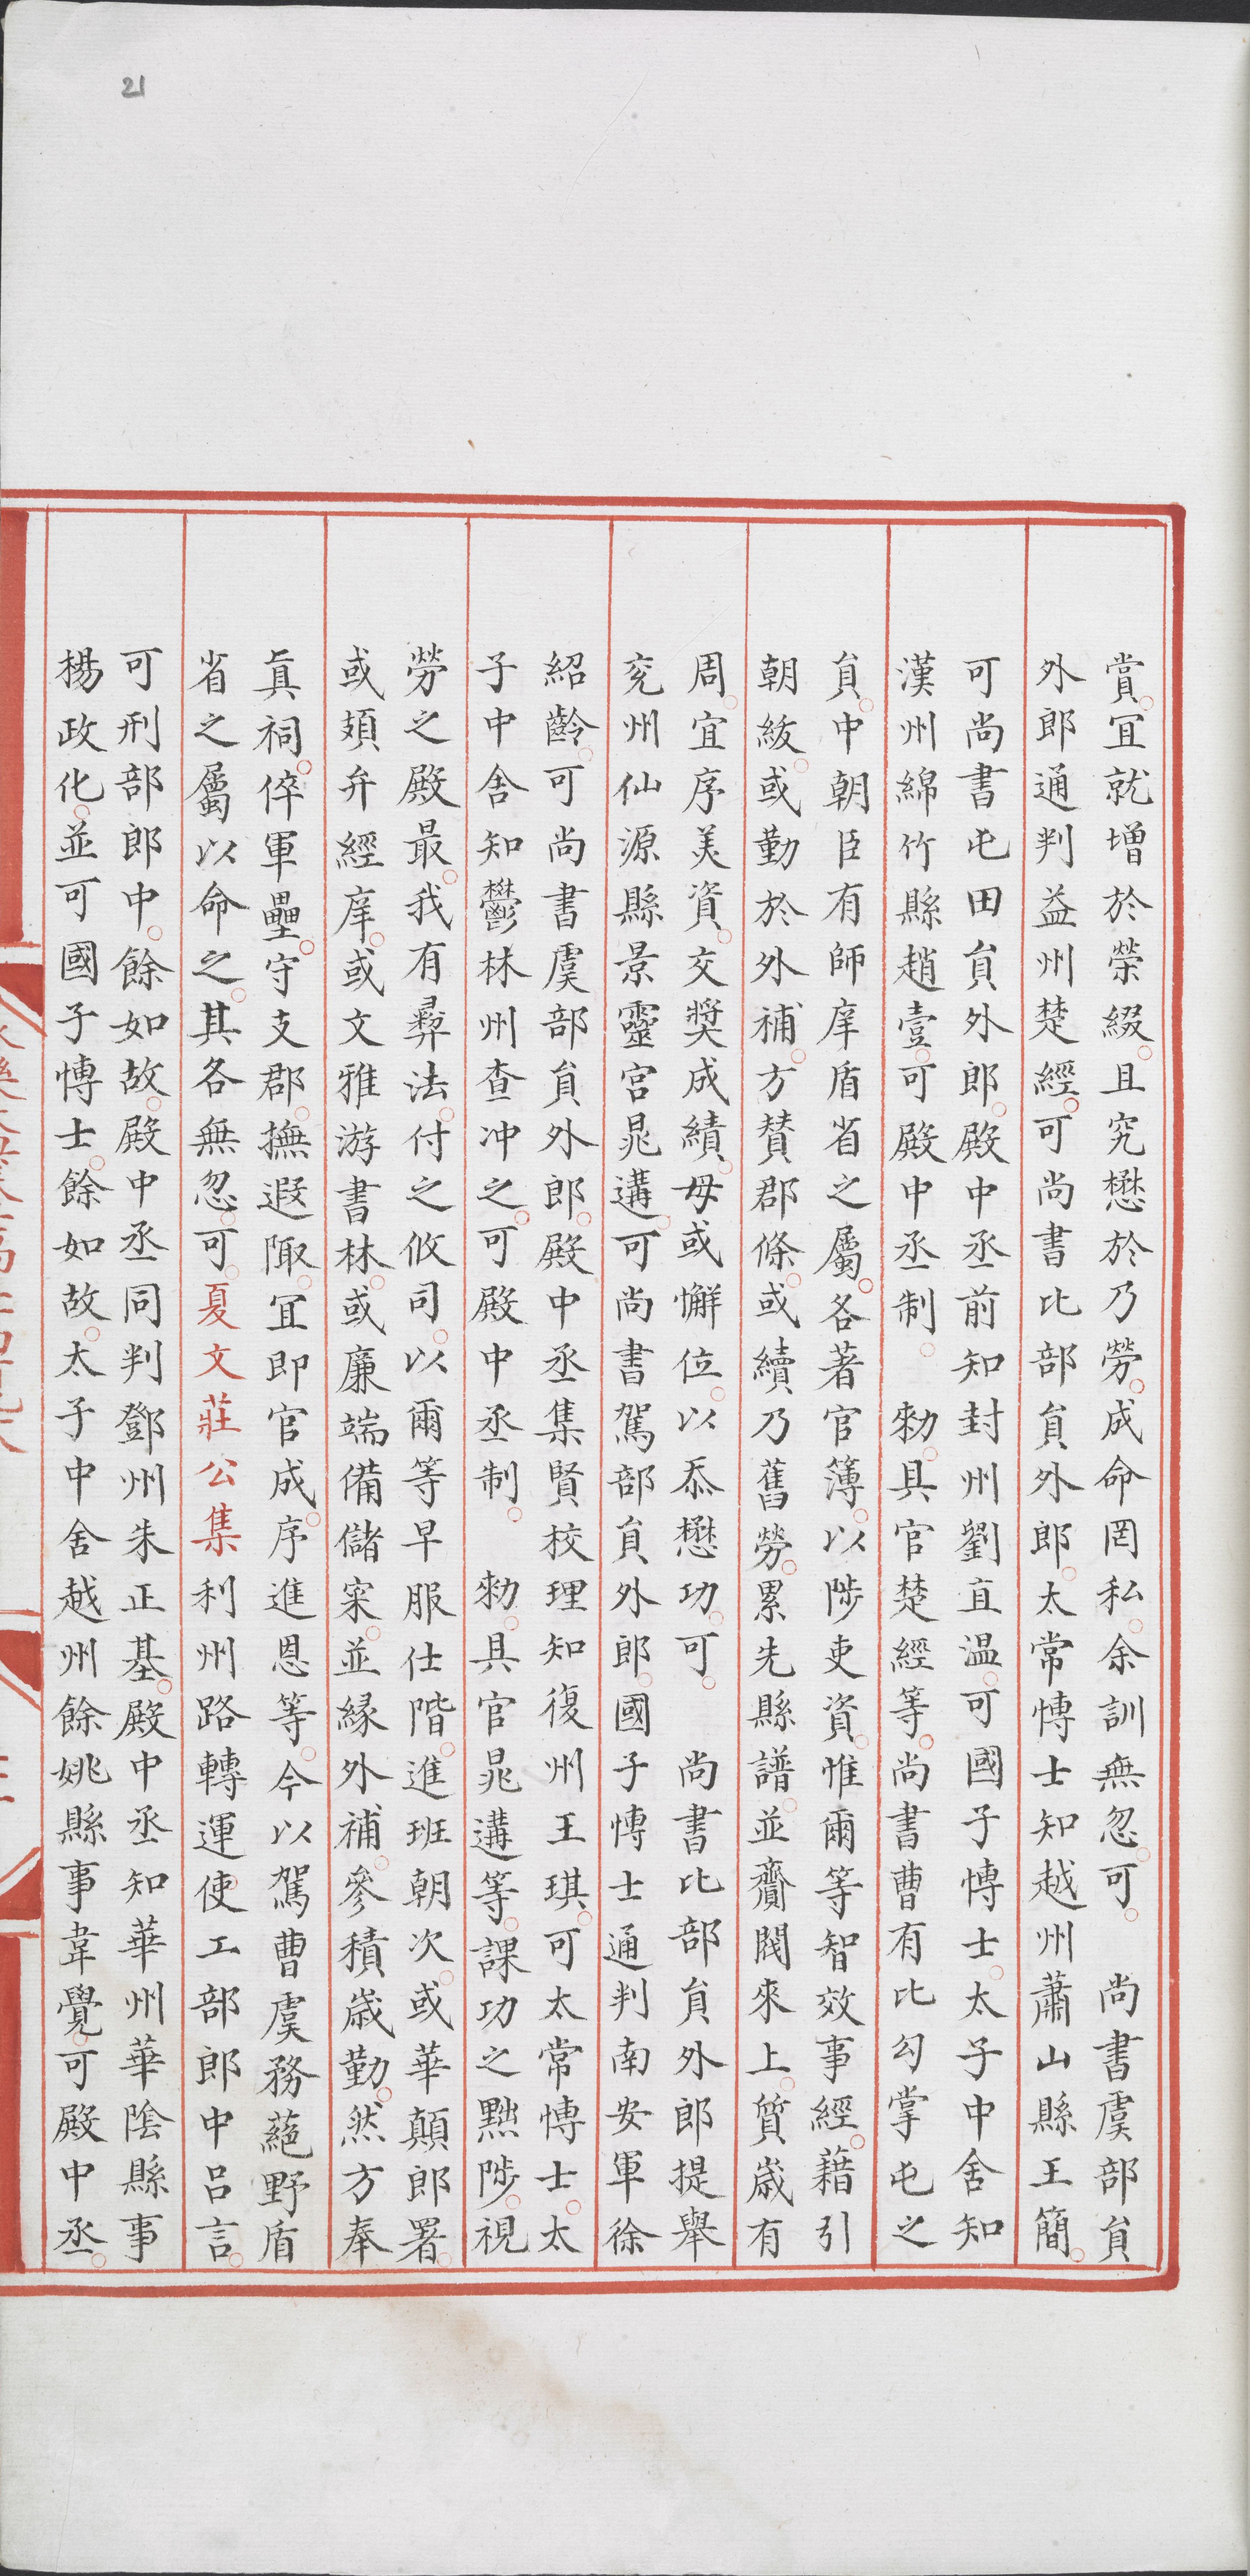 21
賞宜就增於榮綴且究懋於乃勞成命罔私余訓無忽可　尚書虞部貟
外郎通判益州楚經可尚書比部貟外郎太常愽士知越州蕭山縣王簡
可尚書屯田貟外郎殿中丞前知封州劉直温可國子愽士太子中舍知
漢州綿竹縣趙壹可殿中丞制　勑具官楚經等尚書曹有比勾掌屯之
貟中朝臣有師庠盾省之屬各著官簿以陟吏資惟爾等智效事經藉引
朝紱或勤於外補方賛郡條或續乃舊勞累先縣譜並齎閥來上質歲有
周宜序美資交奬成績毋或懈位以忝懋功可　尚書比部貟外郎提舉
兖州仙源縣景靈宫晁遘可尚書駕部貟外郎國子愽士通判南安軍徐
紹齡可尚書虞部貟外郎殿中丞集賢校理知復州王琪可太常愽士太
子中舍知鬱林州查冲之可殿中丞制　勑具官晁遘等課功之黜陟視
勞之殿最我有彞法付之攸司以爾等早服仕階進班朝次或華顛郎署
或頍弁經庠或文雅游書林或廉端備儲寀並縁外補參積歲勤然方奉
眞祠倅軍壘守支郡撫遐陬宜即官成序進恩等今以駕曹虞務蕝野盾
省之屬以命之其各無忽可夏文莊公集利州路轉運使工部郎中吕言
可刑部郎中餘如故殿中丞同判鄧州朱正基殿中丞知華州華陰縣事
楊政化並可國子愽士餘如故太子中舍越州餘姚縣事韋覺可殿中丞